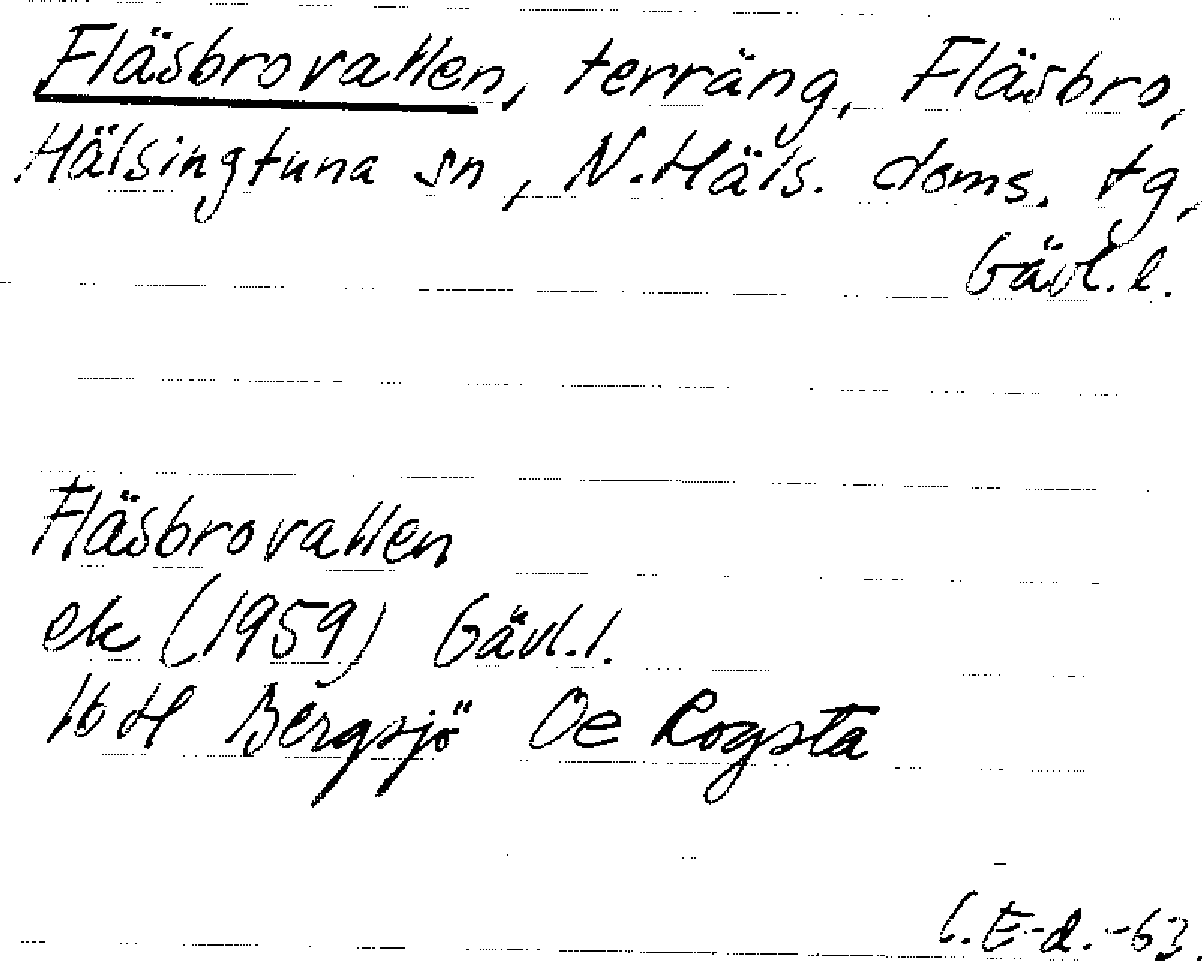 Fläsbrovallen, terräng, Fläsbro,
Hälsingtuna sn, N. Häls. doms. tg,
Gävl. l.
Fläsbrovallen
ek (1959) Gävl. l.
16 H Bergsjö Öe Rogsta
G. E-d. -63.